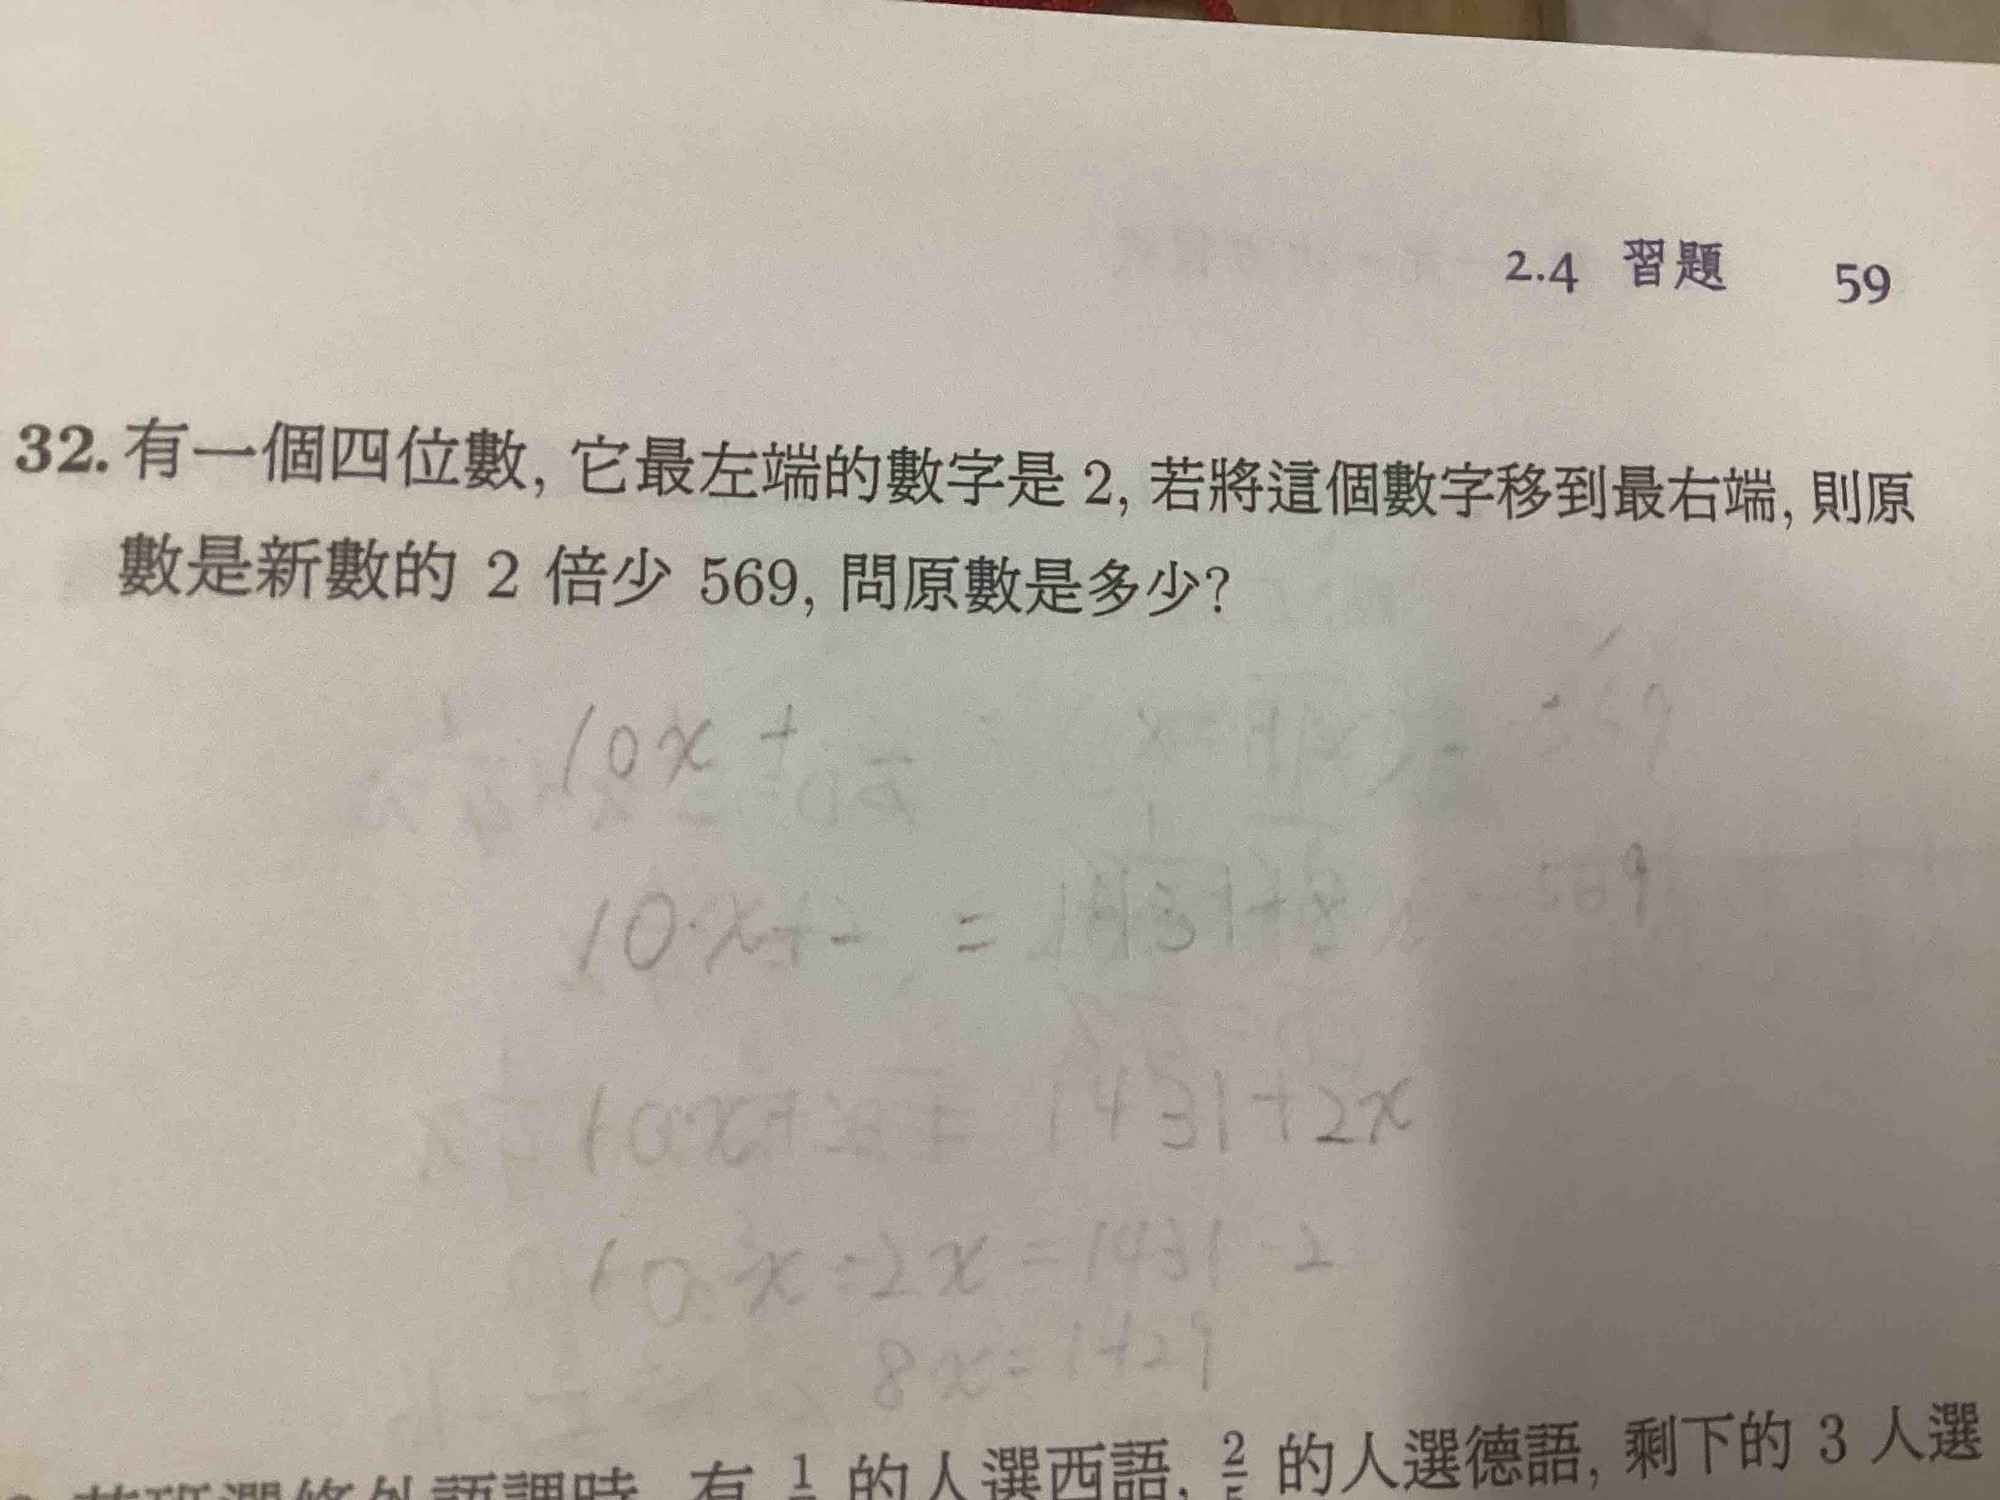 2.4 習題 59
32. 有一個四位數, 它最左端的數字是 2, 若將這個數字移到最右端, 則原
數是新數的 2 倍少 569, 問原數是多少?
10x +
10·x+2 = 1431+ 569
10x+2 = 1431+2x
10·x-2x=1431-2
8x=1429
有 的人選西語, 2/5 的人選德語, 剩下的 3 人選